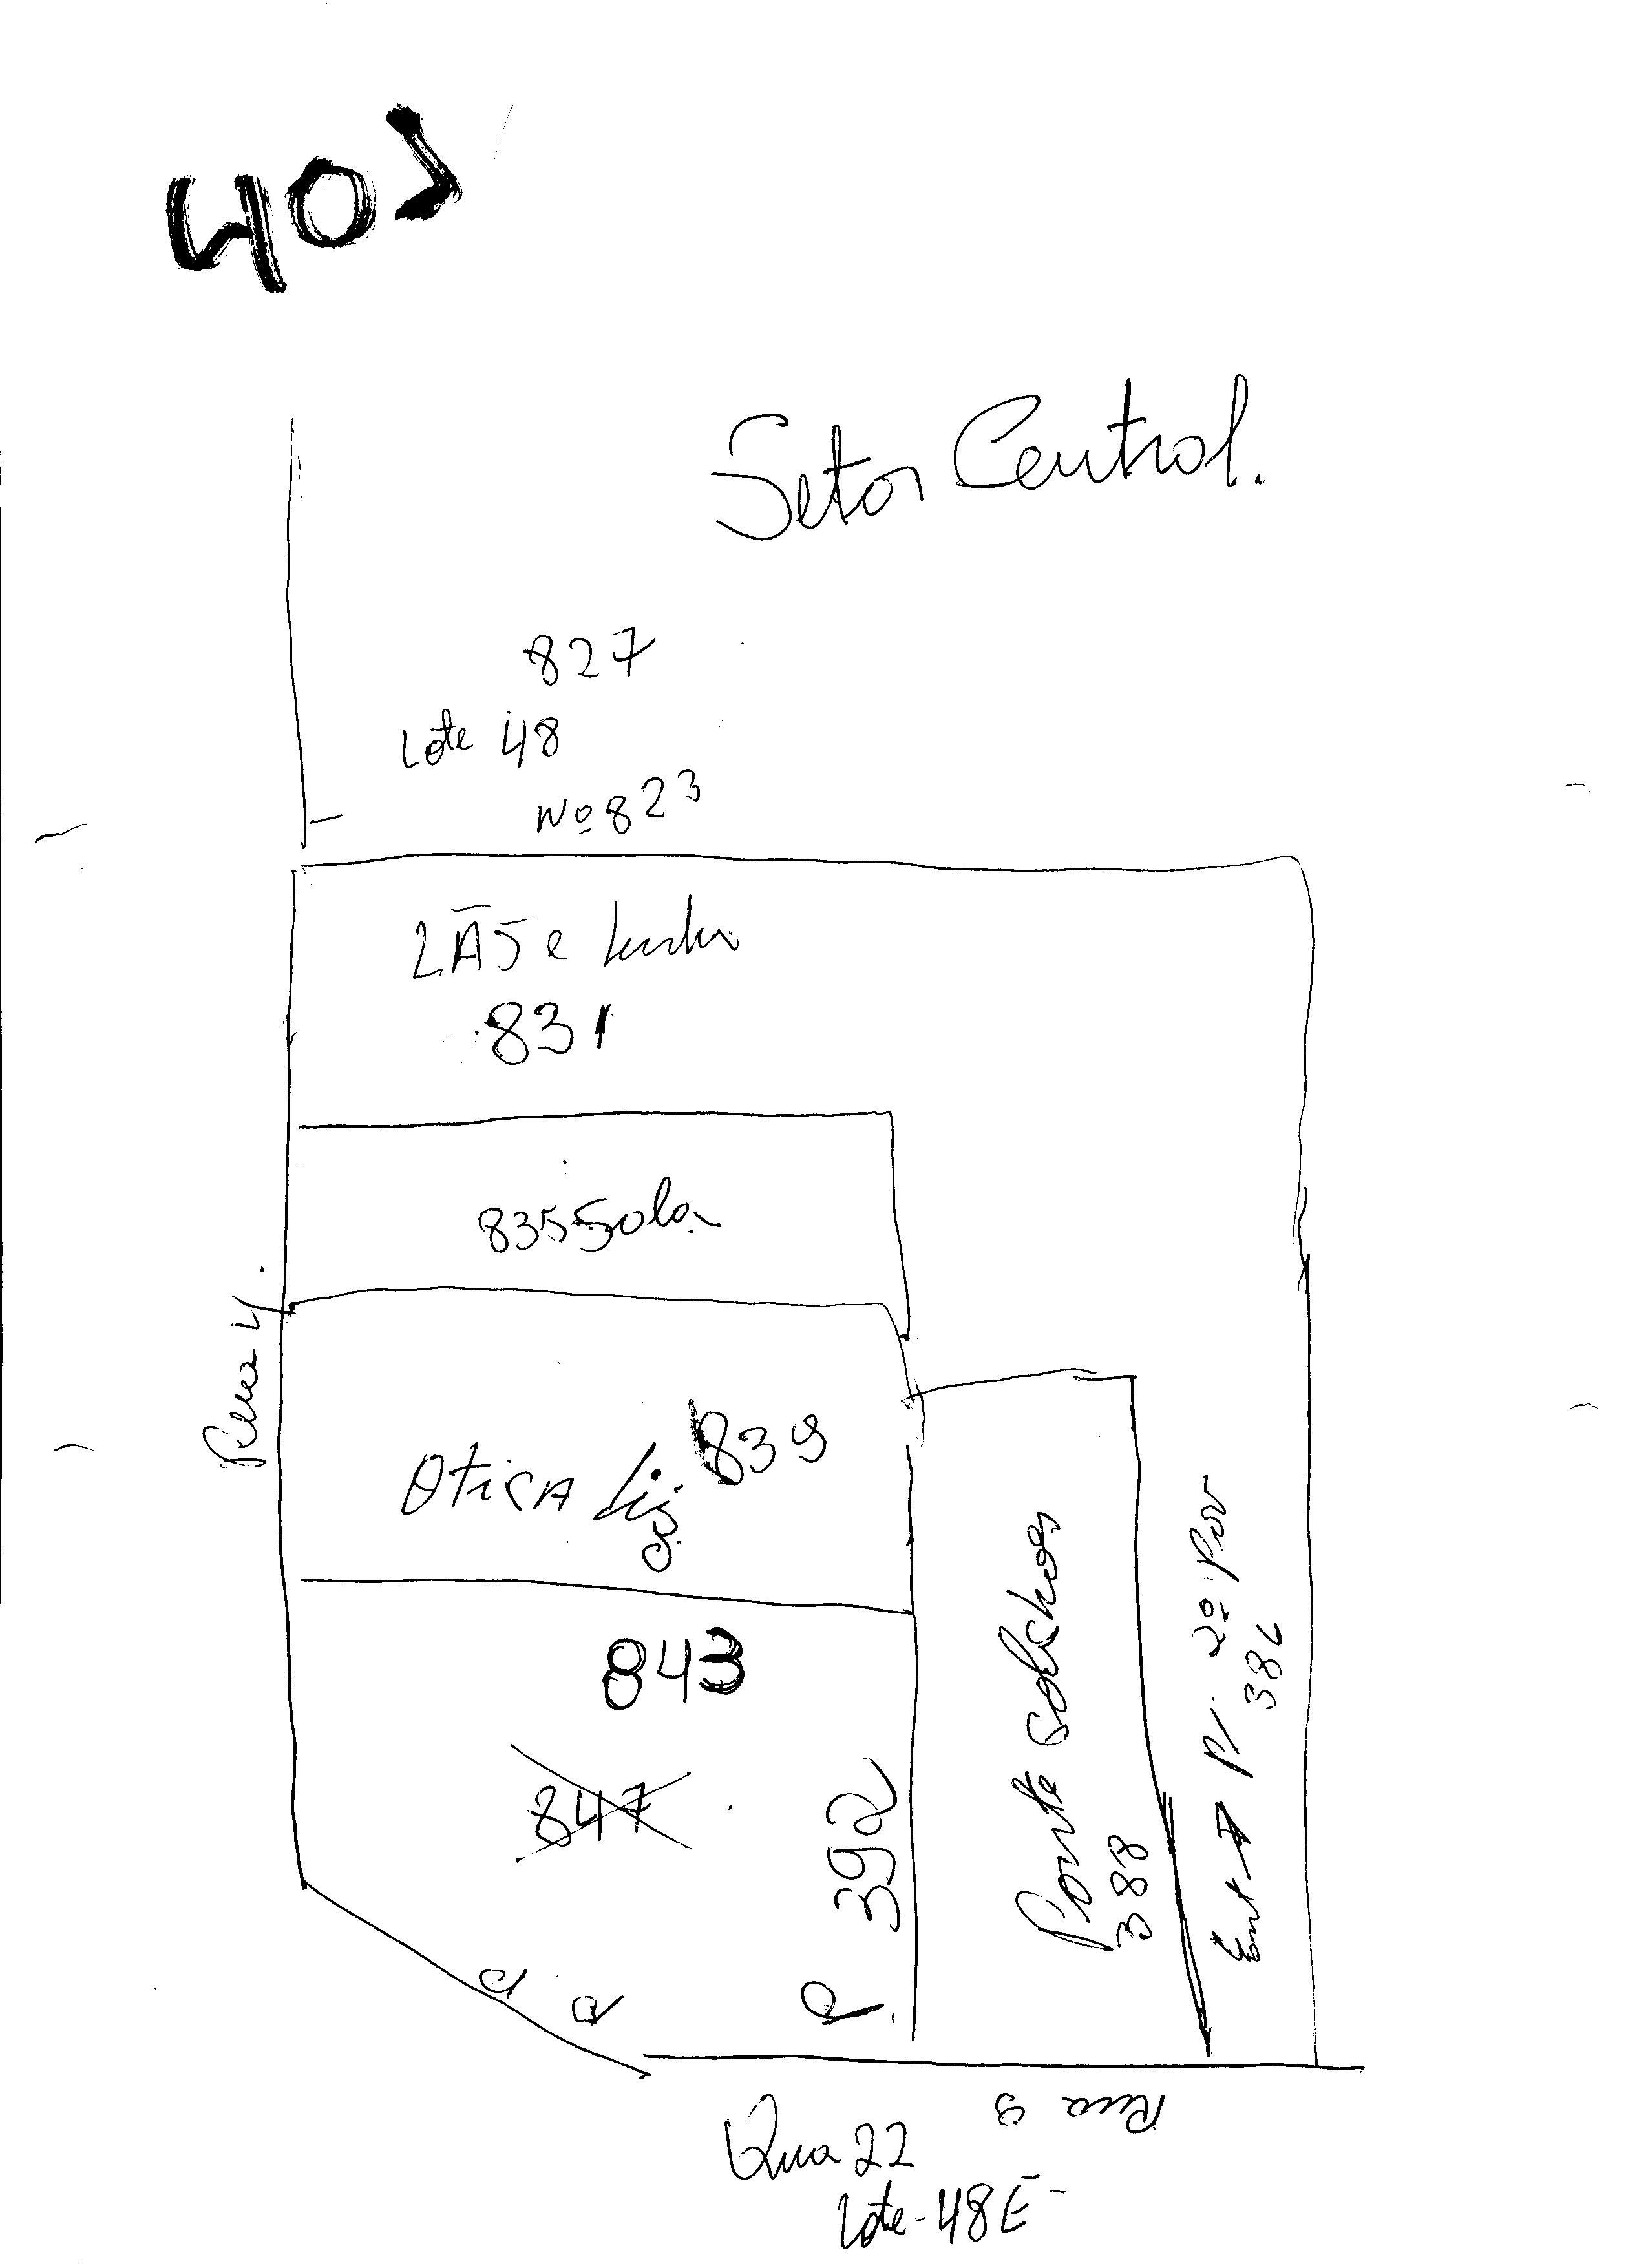 Setor Central.
827
Lote 48
Nº 823
LÃS e
831
835 Sola
Rua 4.
Otica 839
843
847
P. 392
Ponto colchoes
388
Ent. P/. 2º Pav
Rua 9
Qua 22
Lote - 48E